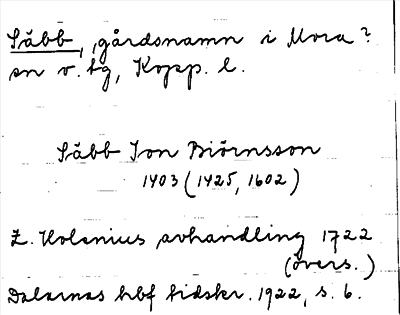 Säbb, gårdsnamn i Mora?
sn o. tg, Kopp. l.
Säbb Jon Björnsson
1403 (1425, 1602)
Z. Holenius avhandling 1722
(övers.)
Dalarnas hbf tidskr. 1922, s. 6.